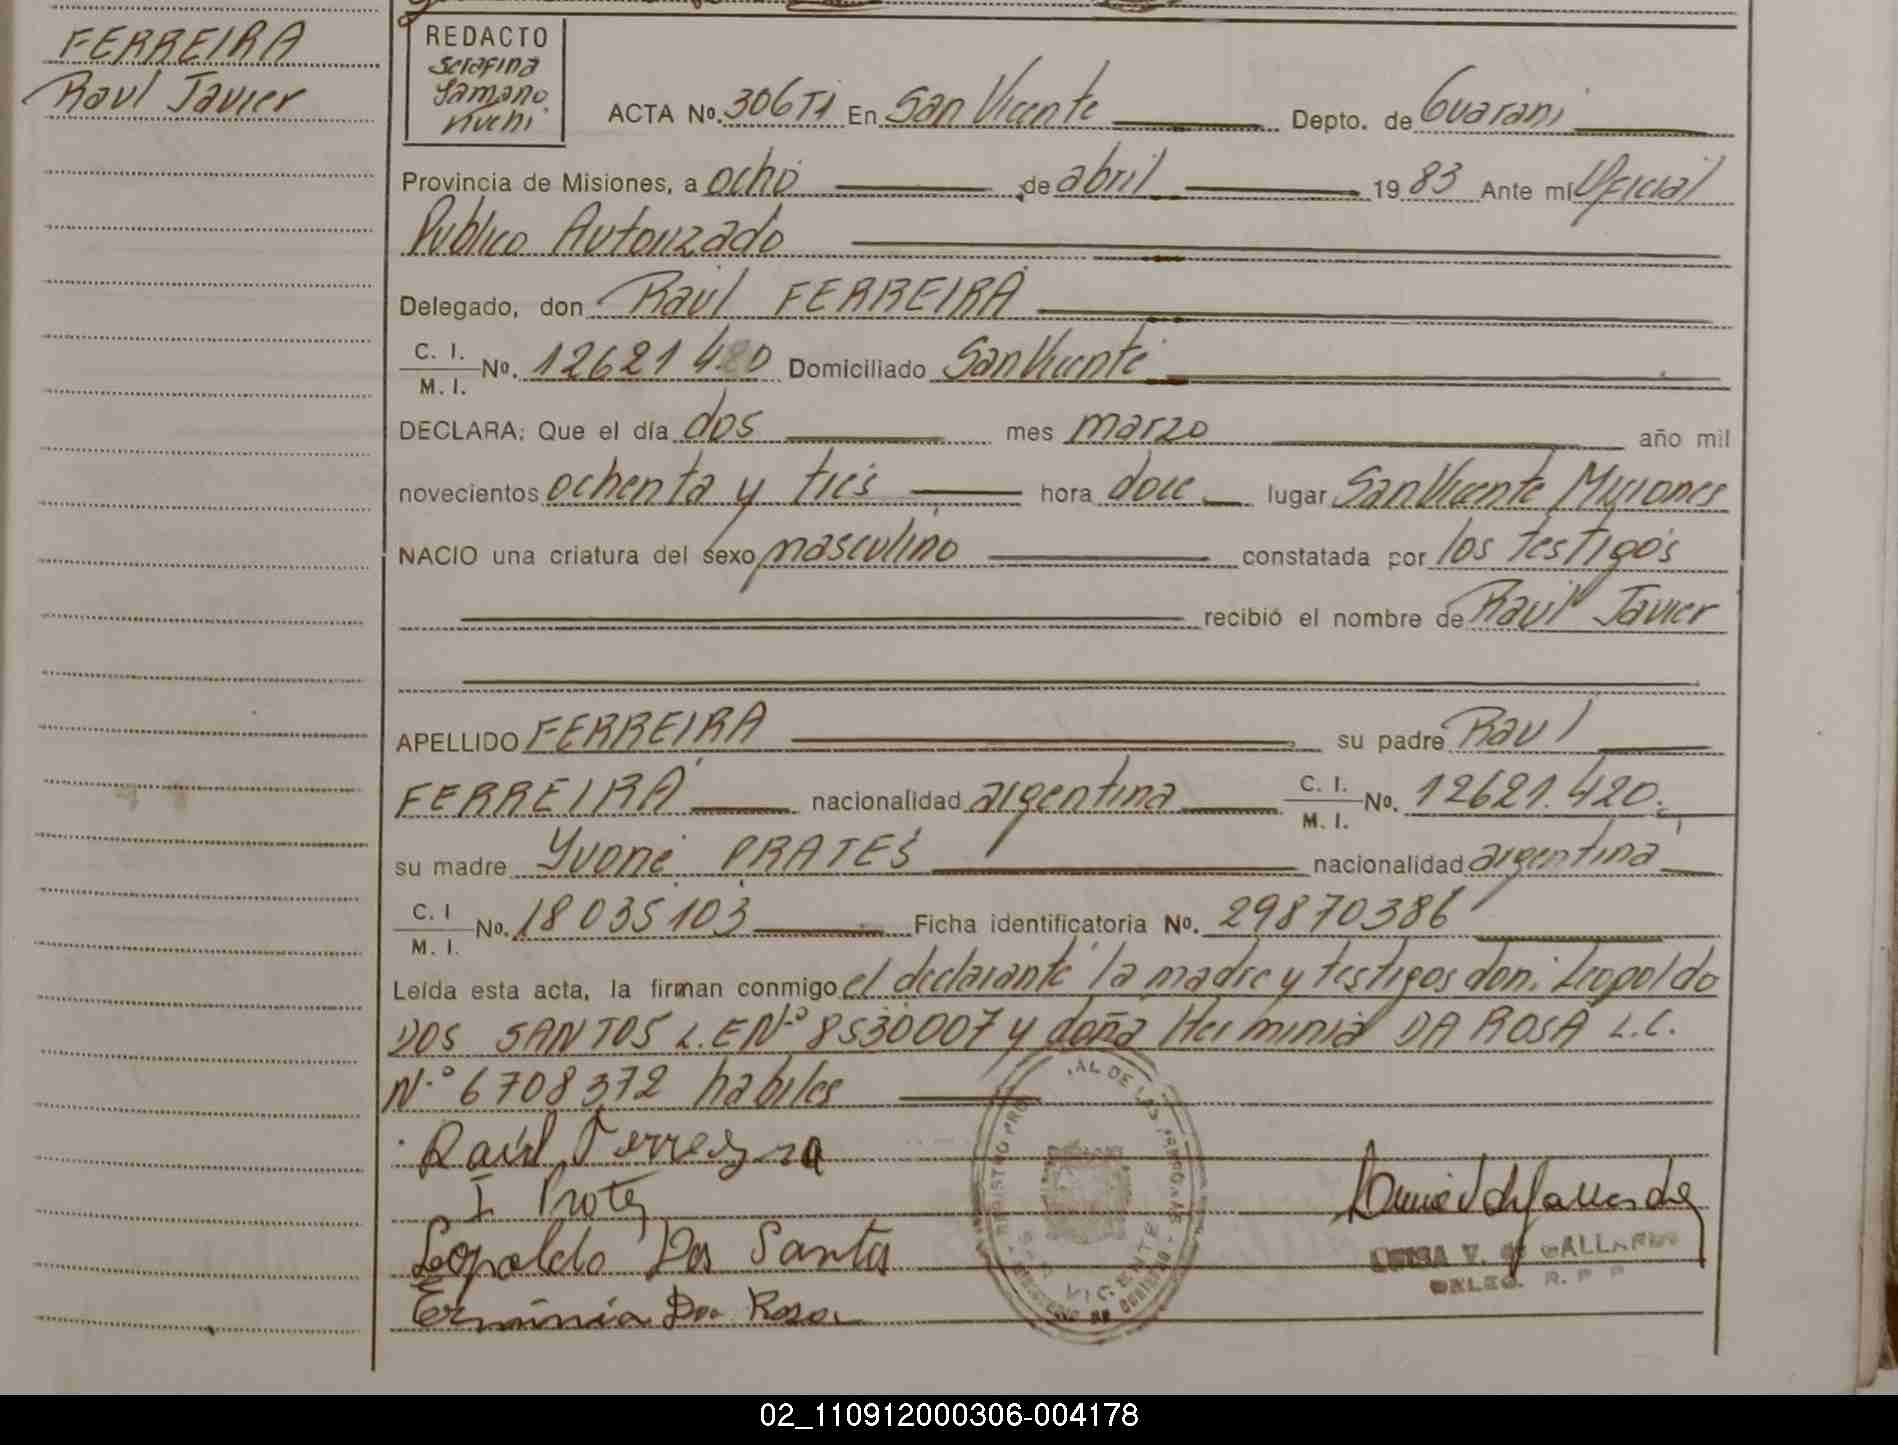 FERREIRA
Raul Javier
REDACTO
Serafina
Yamano
Kuchi
ACTA Nº. 306 TI En San Vicente Depto. de Guarani
Provincia de Misiones, a ocho de abril 1983 Ante mí Oficial
Publico Autorizado
Delegado, don Raul FERREIRA
C. I.
M. I. Nº. 12621420 Domiciliado San Vicente
DECLARA: Que el día dos mes marzo año mil
novecientos ochenta y tres hora doce lugar San Vicente Misiones
NACIO una criatura del sexo masculino constatada por los testigos
recibió el nombre de Raul Javier
APELLIDO FERREIRA su padre Raul
FERREIRA nacionalidad argentina C. I.
M. I. Nº. 12621.420.
su madre Yvone PRATES nacionalidad argentina
C. I
M. I. Nº. 18035103 Ficha identificatoria Nº. 29870386
Leída esta acta, la firman conmigo el declarante la madre y testigos don: Leopoldo
DOS SANTOS L.E Nº 8530007 y doña Herminia DA ROSA L.C.
Nº 6708372 habiles
Raúl Ferreyra
I Prates
Leopoldo Dos Santos
Erminia Da Rosa
REGISTRO PRO AL DE LAS PERSONAS
SAN VICENTE
V. de GALLARDO
DELEG. R. P P
02_110912000306-004178